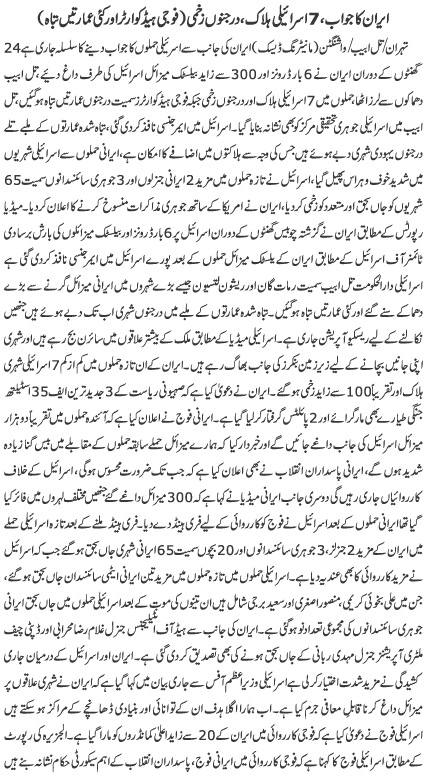 ایران کا جواب، 7 اسرائیلی ہلاک، درجنوں زخمی (فوجی ہیڈ کوارٹر اور کئی عمارتیں تباہ)
تہران/تل ابیب/واشنگٹن (مانیٹرنگ ڈیسک) ایران کی جانب سے اسرائیلی حملوں کا جواب دینے کا سلسلہ جاری ہے 24
گھنٹوں کے دوران ایران نے 6 بار ڈرونز اور 300 سے زاید بیلسٹک میزائل اسرائیل کی طرف داغ دیئے، تل ابیب
دھماکوں سے لرز اٹھا، حملوں میں 7 اسرائیلی ہلاک اور درجنوں زخمی جبکہ فوجی ہیڈ کوارٹر سمیت درجنوں عمارتیں تباہ ہوگئیں، تل
ابیب میں اسرائیلی جوہری تحقیقی مرکز کو بھی نشانہ بنایا گیا۔ اسرائیل میں ایمرجنسی نافذ کردی گئی، تباہ شدہ عمارتوں کے ملبے تلے
درجنوں یہودی شہری دبے ہوئے ہیں جس کی وجہ سے ہلاکتوں میں اضافے کا امکان ہے، ایرانی حملوں سے اسرائیلی شہریوں
میں شدید خوف و ہراس پھیل گیا، اسرائیل نے تازہ حملوں میں مزید 2 ایرانی جنرلوں اور 3 جوہری سائنسدانوں سمیت 65
شہریوں کو جاں بحق اور متعدد کو زخمی کردیا، ایران نے امریکا کے ساتھ جوہری مذاکرات منسوخ کرنے کا اعلان کردیا۔ میڈیا
رپورٹس کے مطابق ایران نے گزشتہ چوبیس گھنٹوں کے دوران اسرائیل پر 6 بار ڈرونز اور بیلسٹک میزائلوں کی بارش برسادی
ٹائمز آف اسرائیل کے مطابق ایران کے بیلسٹک میزائل حملوں کے بعد پورے اسرائیل میں ایمرجنسی نافذ کردی گئی ہے
اسرائیلی دارالحکومت تل ابیب سمیت رمات گان اور ریشون لتسیون جیسے بڑے شہروں میں ایرانی میزائل گرنے سے بڑے
دھماکے سنے گئے اور کئی عمارتیں تباہ ہوگئیں۔ تباہ شدہ عمارتوں کے ملبے میں درجنوں شہری اب تک دبے ہوئے ہیں جنھیں
نکالنے کے لیے ریسکیو آپریشن جاری ہے۔ اسرائیلی میڈیا کے مطابق ملک کے بیشتر علاقوں میں سائرن بج رہے ہیں اور شہری
اپنی جانیں بچانے کے لیے زیر زمین بنکرز کی جانب بھاگ رہے ہیں۔ ایران کے ان تازہ حملوں میں کم از کم 7 اسرائیلی شہری
ہلاک اور تقریباً 100 سے زاید زخمی ہوگئے۔ ایران نے دعویٰ کیا ہے کہ صہیونی ریاست کے 3 جدید ترین ایف 35 اسٹیلتھ
جنگی طیارے بھی مار گرائے اور 2 پائلٹس گرفتار کرلیا گیا ہے۔ ایرانی فوج نے اعلان کیا ہے کہ آئندہ حملوں میں تقریباً دو ہزار
میزائل اسرائیل کی جانب داغے جائیں گے اور خبردار کیا کہ ہمارے میزائل حملے سابقہ حملوں کے مقابلے میں بیس گنا زیادہ
شدید ہوں گے، ایرانی پاسداران انقلاب نے بھی اعلان کیا ہے کہ جب تک ضرورت محسوس ہوگی، اسرائیل کے خلاف
کارروائیاں جاری رہیں گی دوسری جانب ایرانی میڈیا نے کہا ہے کہ 300 میزائل داغے گئے جنھیں مختلف لہروں میں فائر کیا
گیا تھا ایرانی حملوں کے بعد اسرائیل نے فوج کو کارروائی کے لیے فری ہینڈ دے دیا۔ فری ہینڈ ملنے کے بعد تازہ اسرائیلی حملے
میں ایران کے مزید 2 جنرلز، 3 جوہری سائنسدانوں اور 20 بچوں سمیت 65 ایرانی شہری جاں بحق ہوگئے جب کہ اسرائیل
نے مزید کارروائی کا بھی عندیہ دیا ہے۔ اسرائیلی حملوں میں تازہ حملوں میں مزید تین ایرانی ایٹمی سائنسدان جاں بحق ہوگئے ہیں،
جن میں علی بخوئی کریمی، منصور اصغری اور سعید برجی شامل ہیں ان تینوں کی موت کے بعد اسرائیلی حملوں میں جاں بحق ایرانی
جوہری سائنسدانوں کی مجموعی تعداد نو ہوگئی ہے۔ ایران کی جانب سے ہیڈ آف انٹیلیجنس جنرل غلام رضا محرابی اور ڈپٹی چیف
ملٹری آپریشنز جنرل مہدی ربانی کے جاں بحق ہونے کی بھی تصدیق کردی گئی ہے۔ ایران اور اسرائیل کے درمیان جاری
کشیدگی نے مزید شدت اختیار کرلی ہے اسرائیلی وزیراعظم آفس سے جاری بیان میں کہا گیا ہے کہ ایران نے شہری علاقوں پر
میزائل داغ کر نا قابل معافی جرم کیا ہے۔ اب ہمارا اگلا ہدف ان کے توانائی اور بنیادی ڈھانچے کے مراکز ہوسکتے ہیں
اسرائیلی فوج نے دعویٰ کیا ہے کہ فوجی کارروائی میں ایران کے 20 سے زاید اعلیٰ کمانڈروں کو مارا گیا ہے۔ الجزیرہ کی رپورٹ
کے مطابق اسرائیلی فوج کا کہنا ہے کہ فوجی کارروائی میں ایرانی فوج، پاسداران انقلاب کے اہم سیکورٹی حکام نشانہ بنے ہیں